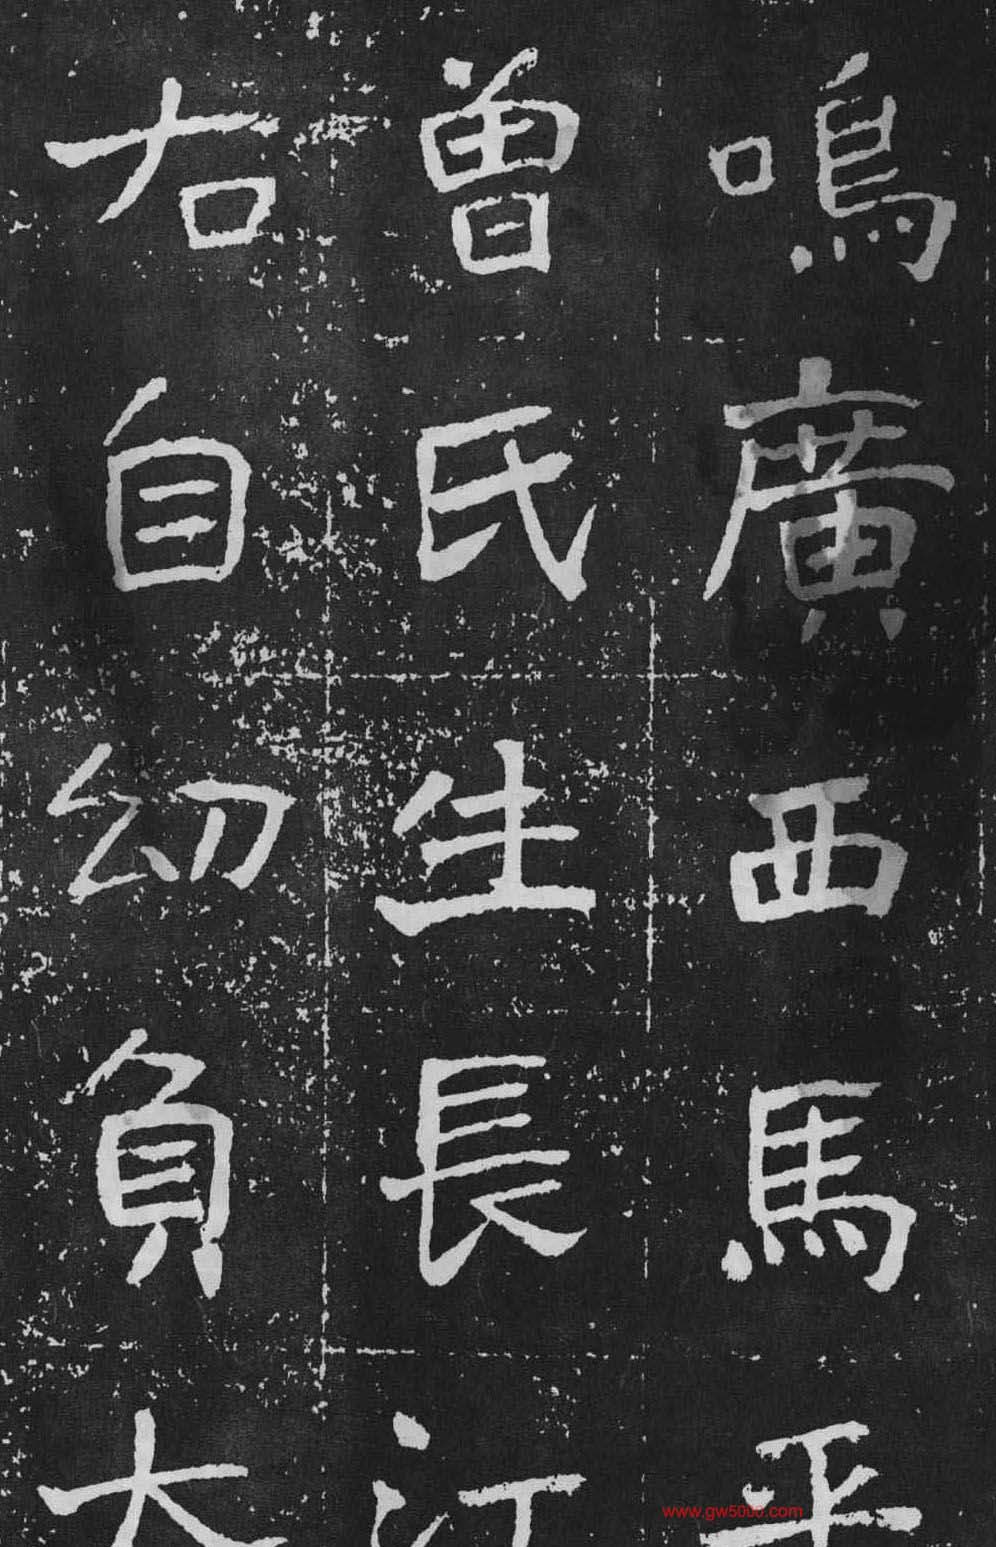 鳴廣西馬平
曾氏生長江
右自幼負大
www.gw5000.com